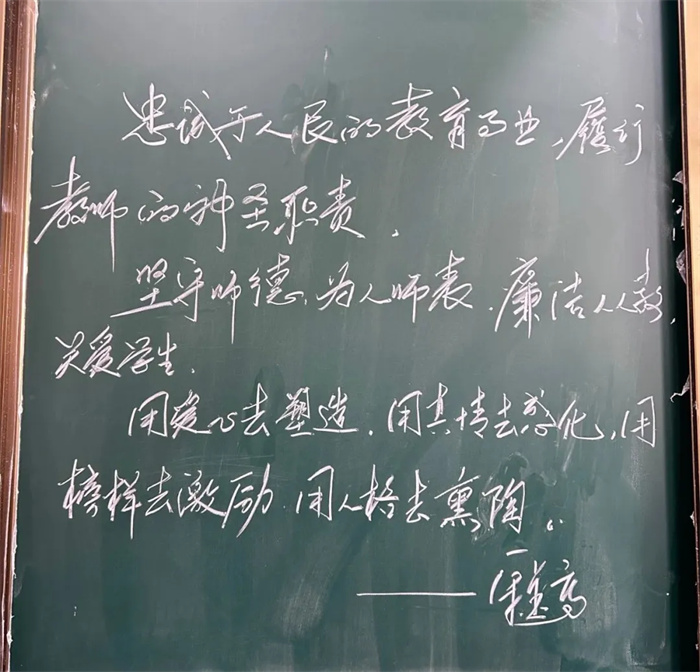 忠诚于人民的教育事业,履行
教师的神圣职责.
坚守师德,为人师表.廉洁从教,
关爱学生.
用爱心去塑造.用真情去感化,用
榜样去激励.用人格去熏陶。
——